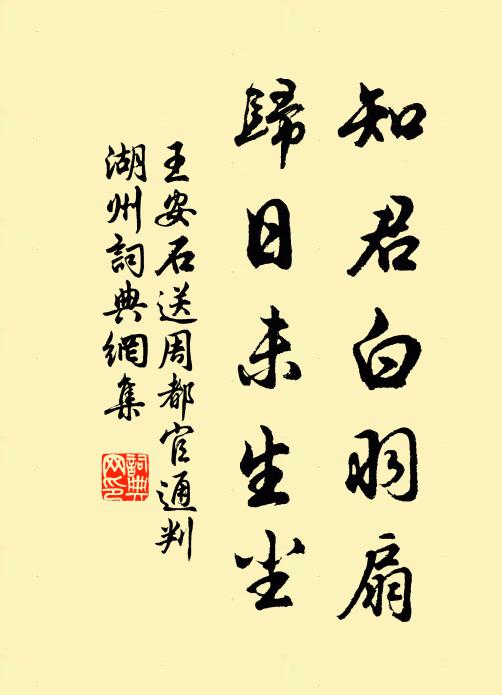 知君白羽扇
歸日未生尘
王安石送周都官通判
湖州詞典網集
詞典
网印